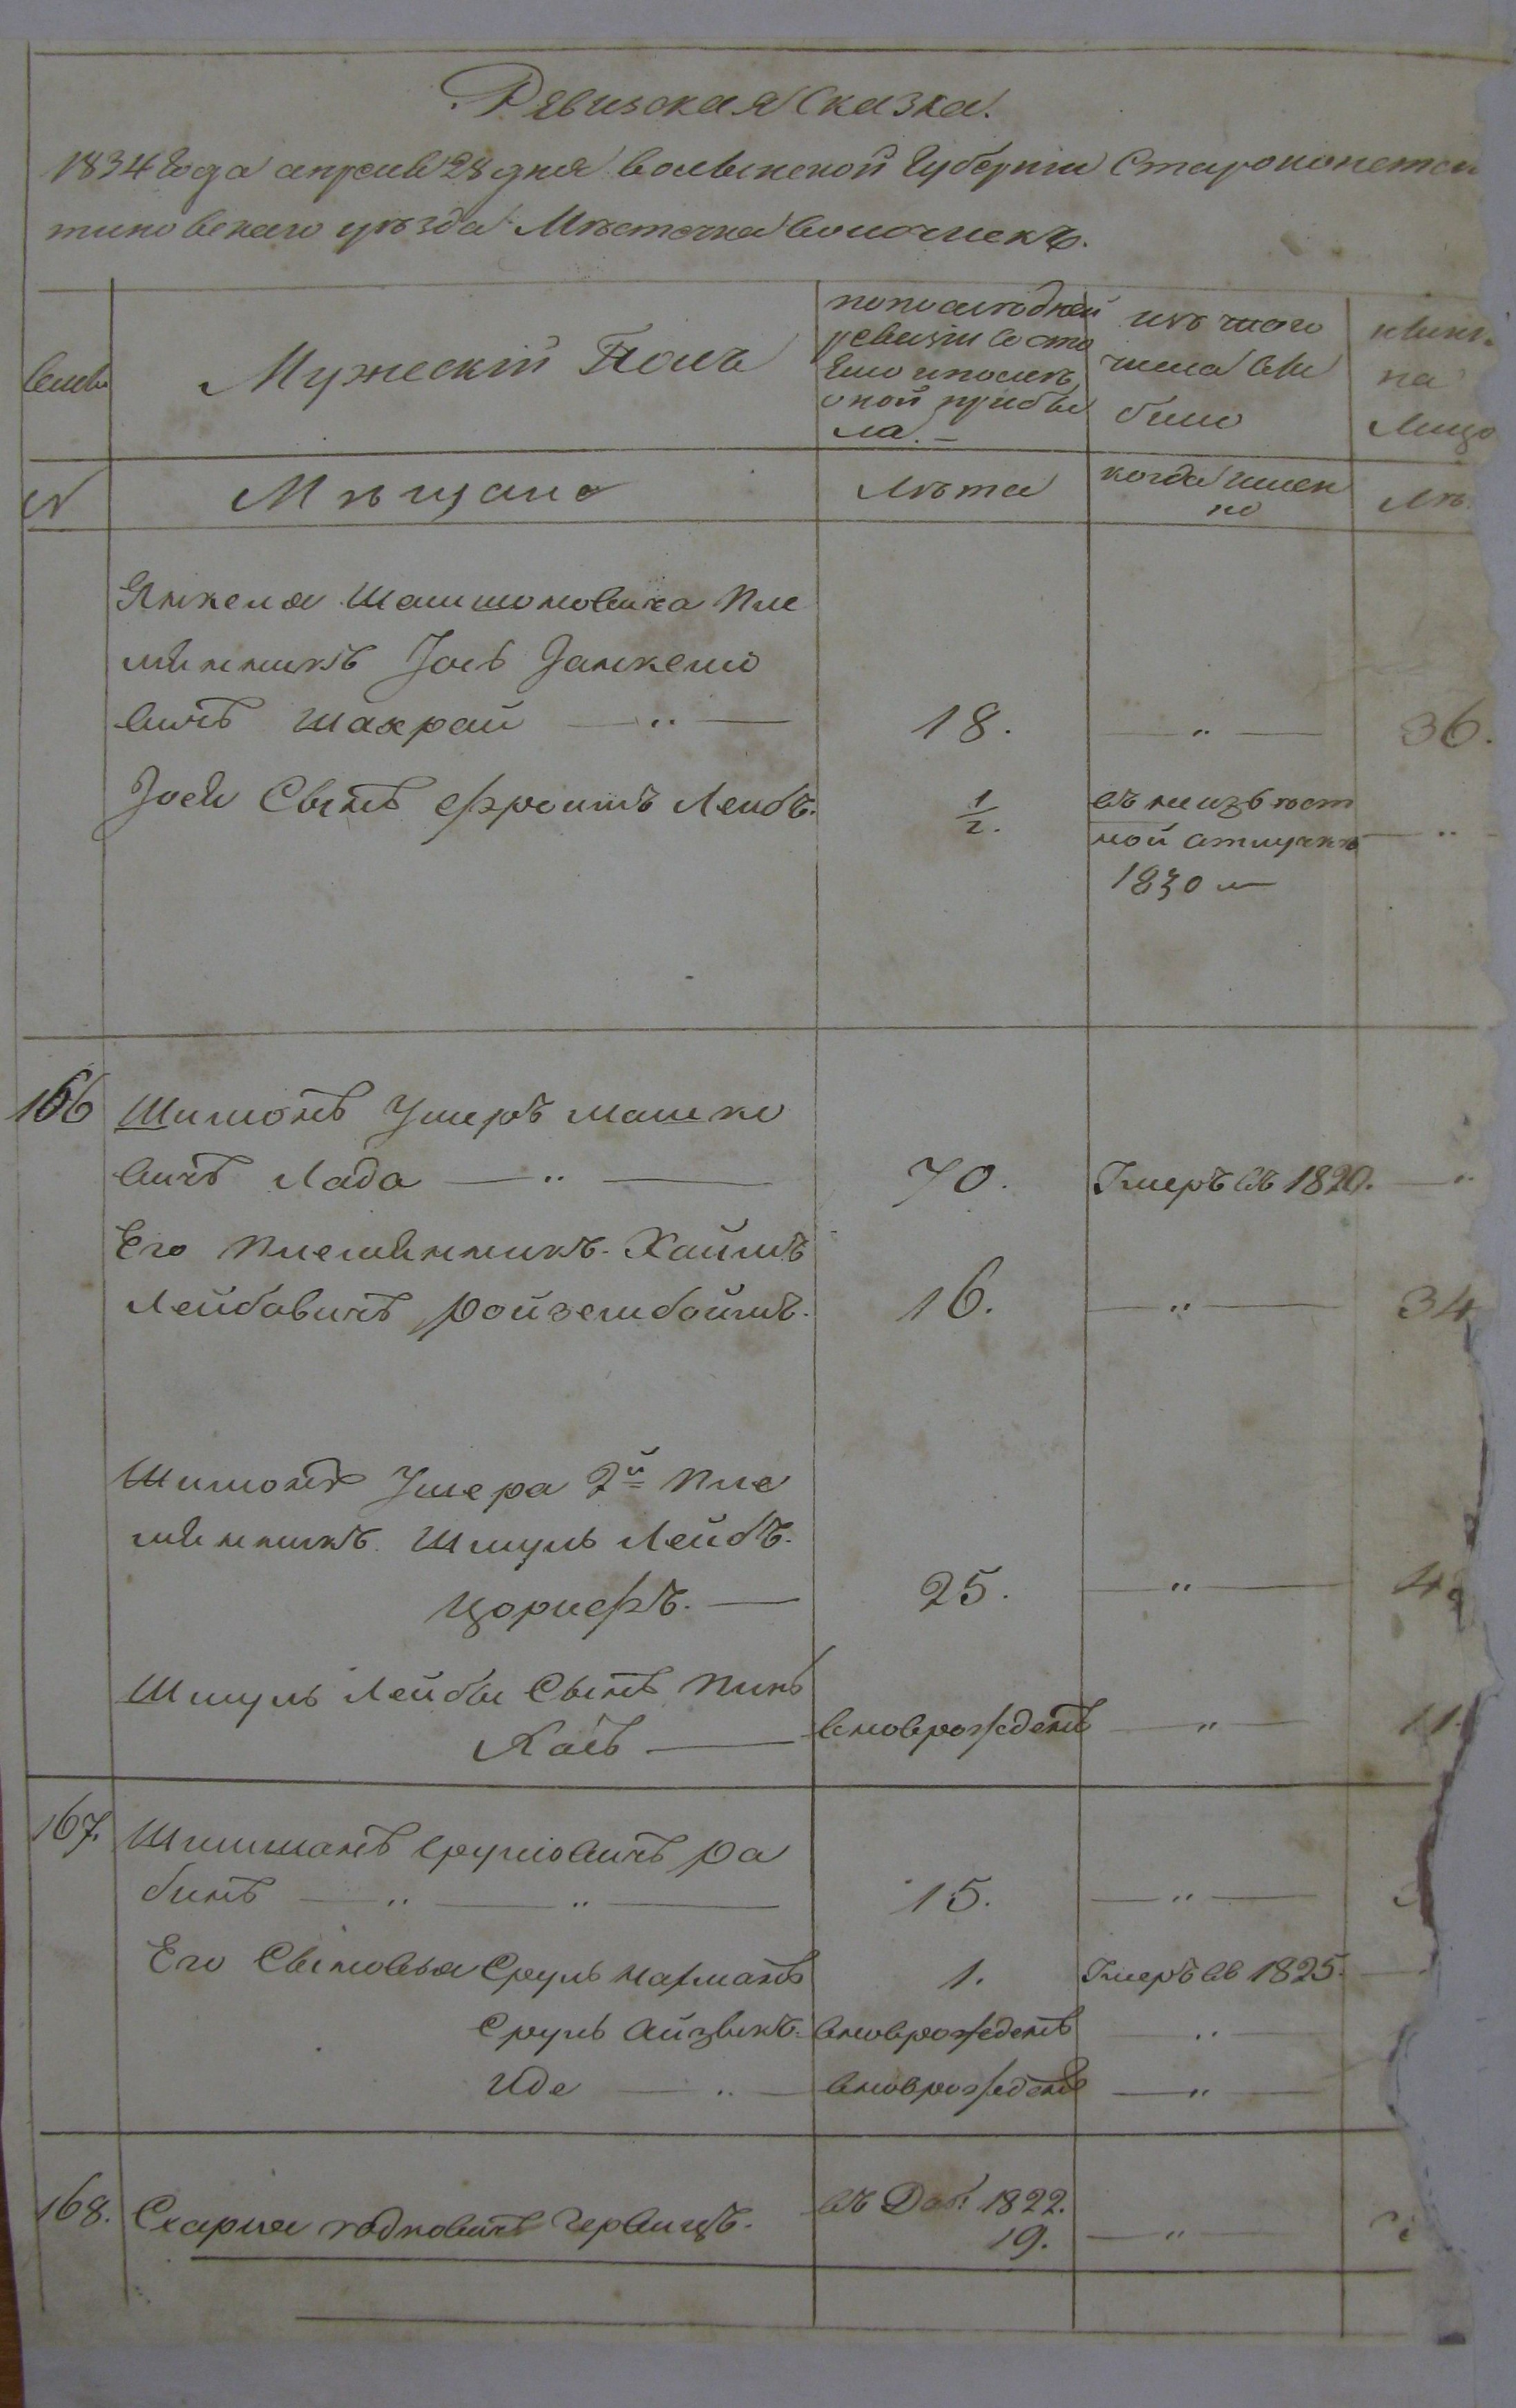 Ревизская Сказка.
1834 года апреля 28 дня Волынской Губернiи Староконстан
тиновскаго уѣзда Мѣстечка Волочискъ.
Мужескiй Полъ
по последней
ревизiи состо
яло и послѣ
оной прибы
ла. —
изъ того
числа вы
было
нынѣ
на
лицо
N
Мѣщане
Лѣта
когда имен
но
Лѣ
Янкеля Шаишоновича Пле
мянникъ Iось Янкело
вичъ Шахрай — " —
18.
— " —
36.
Iося Сынъ Эфроимъ Лейбъ.
1/2.
въ неизвѣст
ной отлучкѣ
1830
— "
166
Шимонъ Ушеръ Машко
вичъ Лада — " —
70.
Умеръ въ 1820.
— "
Его Племянникъ Хаимъ
Лейбовичъ Ройзембоймъ.
16.
— " —
34
Шимонъ Ушера 2й Пле
мянникъ Шмуль Лейбъ.
Цорнефъ. —
25.
— " —
Шмуль Лейбы Сынъ Пинъ
Касъ —
вновьрожденъ
— " —
11.
167.
Шимшанъ Сруловичъ Ра
бинъ — " — " —
15.
— " —
Его Сыновья Сруль Нахманъ
1.
Умеръ въ 1825.
Сруль Айзыкъ.
вновьрожденъ
" —
Иде — " —
вновьрожденъ
— " —
168.
Схарiя Червицъ.
въ Доб. 1822.
19.
— " —